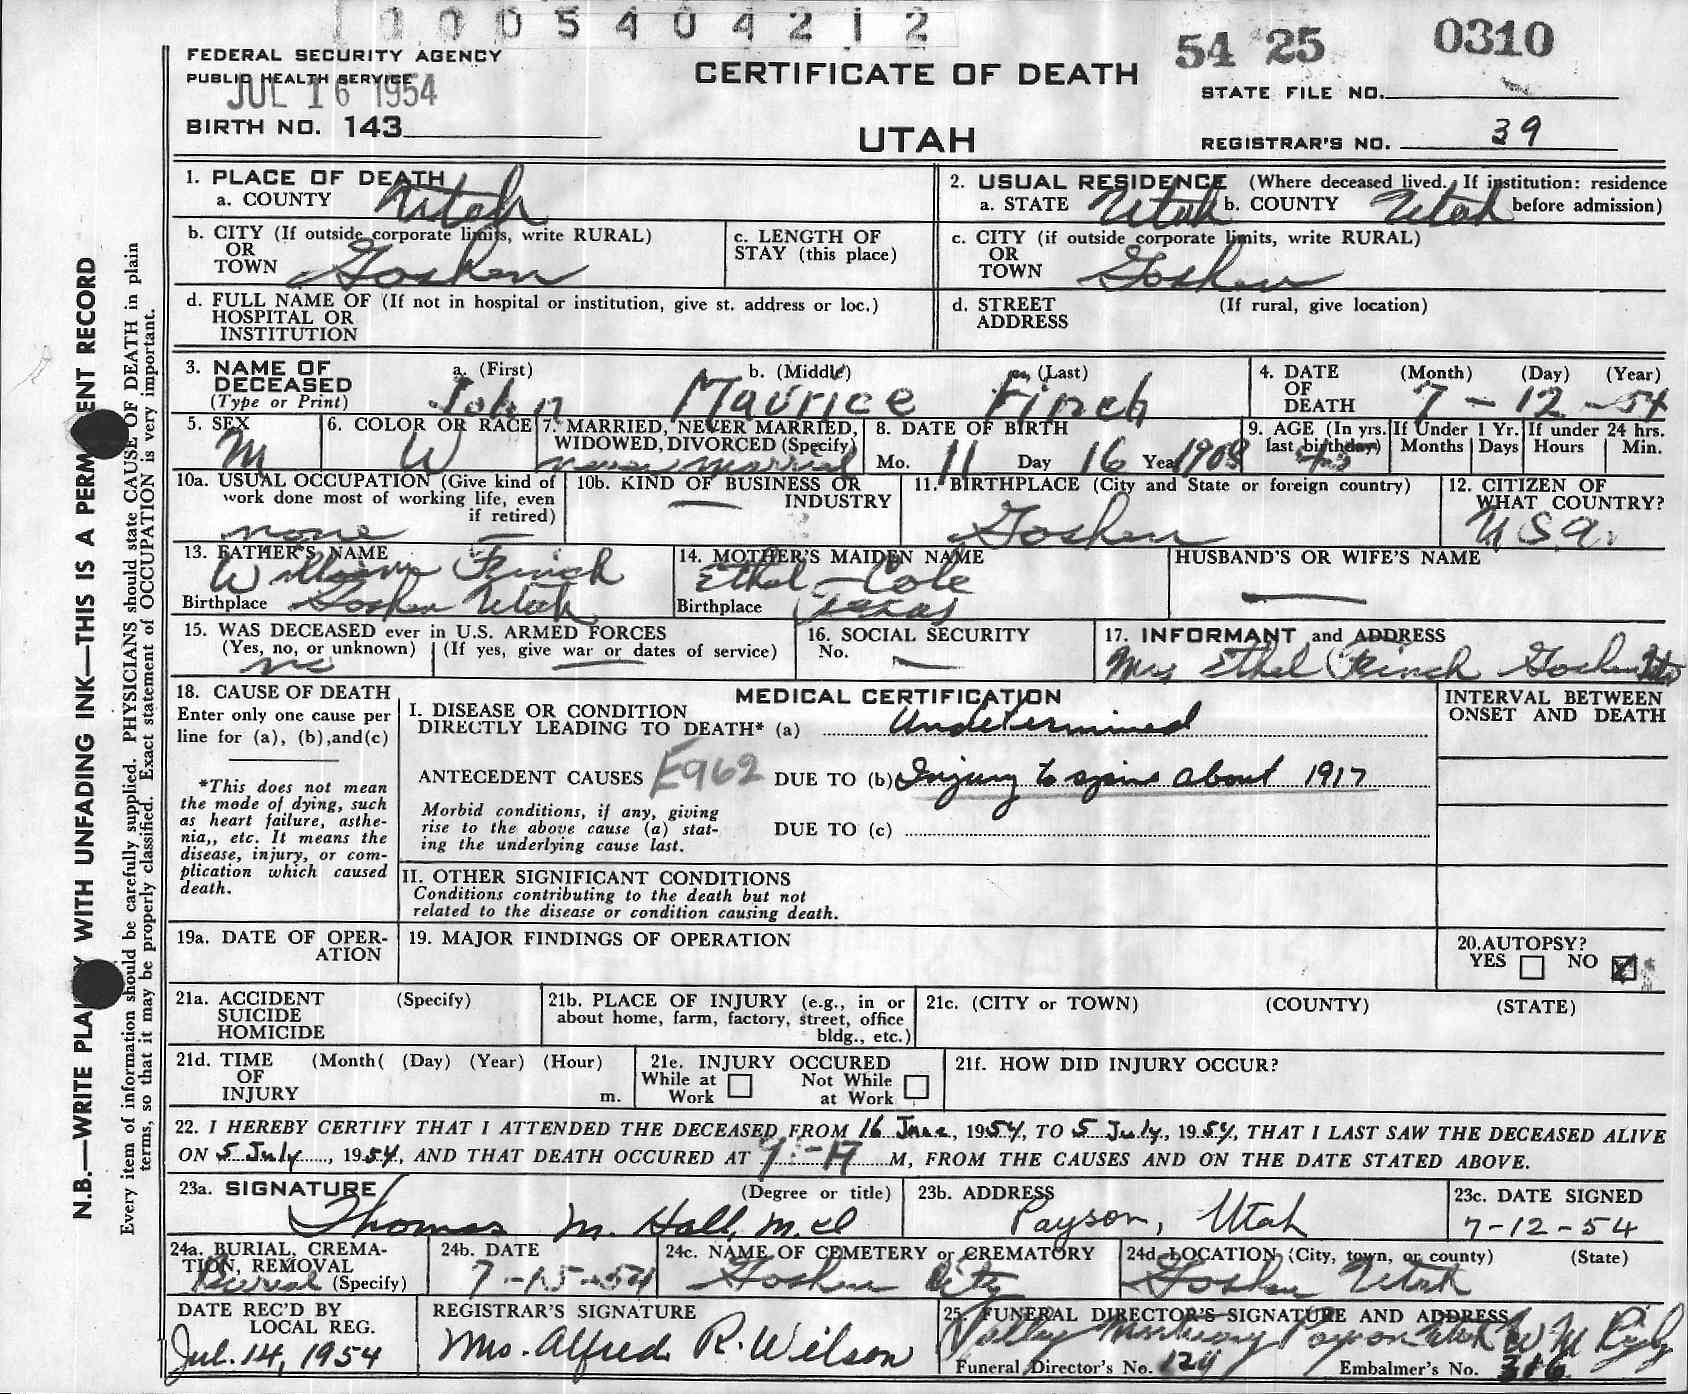 1 0 0 0 5 4 0 4 2 1 2
54 25 0310
FEDERAL SECURITY AGENCY
PUBLIC HEALTH SERVICE
JUL 16 1954
BIRTH NO. 143
CERTIFICATE OF DEATH
UTAH
STATE FILE NO.
REGISTRAR'S NO. 39
N.B.—WRITE PLAINLY WITH UNFADING INK—THIS IS A PERMANENT RECORD
Every item of information should be carefully supplied. PHYSICIANS should state CAUSE OF DEATH in plain
terms, so that it may be properly classified. Exact statement of OCCUPATION is very important.
1. PLACE OF DEATH
a. COUNTY Utah
2. USUAL RESIDENCE (Where deceased lived. If institution: residence
a. STATE Utah b. COUNTY Utah before admission)
b. CITY (If outside corporate limits, write RURAL)
OR
TOWN Goshen
c. LENGTH OF
STAY (this place)
c. CITY (if outside corporate limits, write RURAL)
OR
TOWN Goshen
d. FULL NAME OF (If not in hospital or institution, give st. address or loc.)
HOSPITAL OR
INSTITUTION
d. STREET (If rural, give location)
ADDRESS
3. NAME OF
DECEASED
(Type or Print)
a. (First) b. (Middle) c. (Last)
John Maurice Finch
4. DATE (Month) (Day) (Year)
OF
DEATH 7-12-54
5. SEX
M
6. COLOR OR RACE
W
7. MARRIED, NEVER MARRIED,
WIDOWED, DIVORCED (Specify)
never married
8. DATE OF BIRTH
Mo. 11 Day 16 Year 1908
9. AGE (In yrs.
last birthday)
45
If Under 1 Yr.
Months Days
If under 24 hrs.
Hours Min.
10a. USUAL OCCUPATION (Give kind of
work done most of working life, even
if retired)
none
10b. KIND OF BUSINESS OR
INDUSTRY
—
11. BIRTHPLACE (City and State or foreign country)
Goshen
12. CITIZEN OF
WHAT COUNTRY?
U.S.A.
13. FATHER'S NAME
William Finch
Birthplace Goshen Utah
14. MOTHER'S MAIDEN NAME
Ethel Cole
Birthplace Texas
HUSBAND'S OR WIFE'S NAME
—
15. WAS DECEASED ever in U.S. ARMED FORCES
(Yes, no, or unknown) (If yes, give war or dates of service)
no —
16. SOCIAL SECURITY
No. —
17. INFORMANT and ADDRESS
Mrs Ethel Finch Goshen Utah
18. CAUSE OF DEATH
Enter only one cause per
line for (a), (b),and(c)
*This does not mean
the mode of dying, such
as heart failure, asthe-
nia,, etc. It means the
disease, injury, or com-
plication which caused
death.
MEDICAL CERTIFICATION
I. DISEASE OR CONDITION
DIRECTLY LEADING TO DEATH* (a) Undetermined
ANTECEDENT CAUSES E962 DUE TO (b) Injury to spine about 1917
Morbid conditions, if any, giving
rise to the above cause (a) stat-
ing the underlying cause last.
DUE TO (c)
INTERVAL BETWEEN
ONSET AND DEATH
II. OTHER SIGNIFICANT CONDITIONS
Conditions contributing to the death but not
related to the disease or condition causing death.
19a. DATE OF OPER-
ATION
19. MAJOR FINDINGS OF OPERATION
20.AUTOPSY?
YES NO
21a. ACCIDENT (Specify)
SUICIDE
HOMICIDE
21b. PLACE OF INJURY (e.g., in or
about home, farm, factory, street, office
bldg., etc.)
21c. (CITY or TOWN) (COUNTY) (STATE)
21d. TIME (Month( (Day) (Year) (Hour)
OF
INJURY m.
21e. INJURY OCCURED
While at Not While
Work at Work
21f. HOW DID INJURY OCCUR?
22. I HEREBY CERTIFY THAT I ATTENDED THE DECEASED FROM 16 June, 1954, TO 5 July, 1954, THAT I LAST SAW THE DECEASED ALIVE
ON 5 July, 1954, AND THAT DEATH OCCURED AT M, FROM THE CAUSES AND ON THE DATE STATED ABOVE.
23a. SIGNATURE (Degree or title)
Thomas M. Hall, M.d
23b. ADDRESS
Payson, Utah
23c. DATE SIGNED
7-12-54
24a. BURIAL, CREMA-
TION, REMOVAL
Burial (Specify)
24b. DATE
7-15-54
24c. NAME OF CEMETERY or CREMATORY
Goshen City
24d. LOCATION (City, town, or county) (State)
Goshen Utah
DATE REC'D BY
LOCAL REG.
Jul. 14, 1954
REGISTRAR'S SIGNATURE
Mrs. Alfred R. Wilson
25. FUNERAL DIRECTOR'S SIGNATURE AND ADDRESS
Valley Mortuary Payson Utah
Funeral Director's No. 124 Embalmer's No. 316